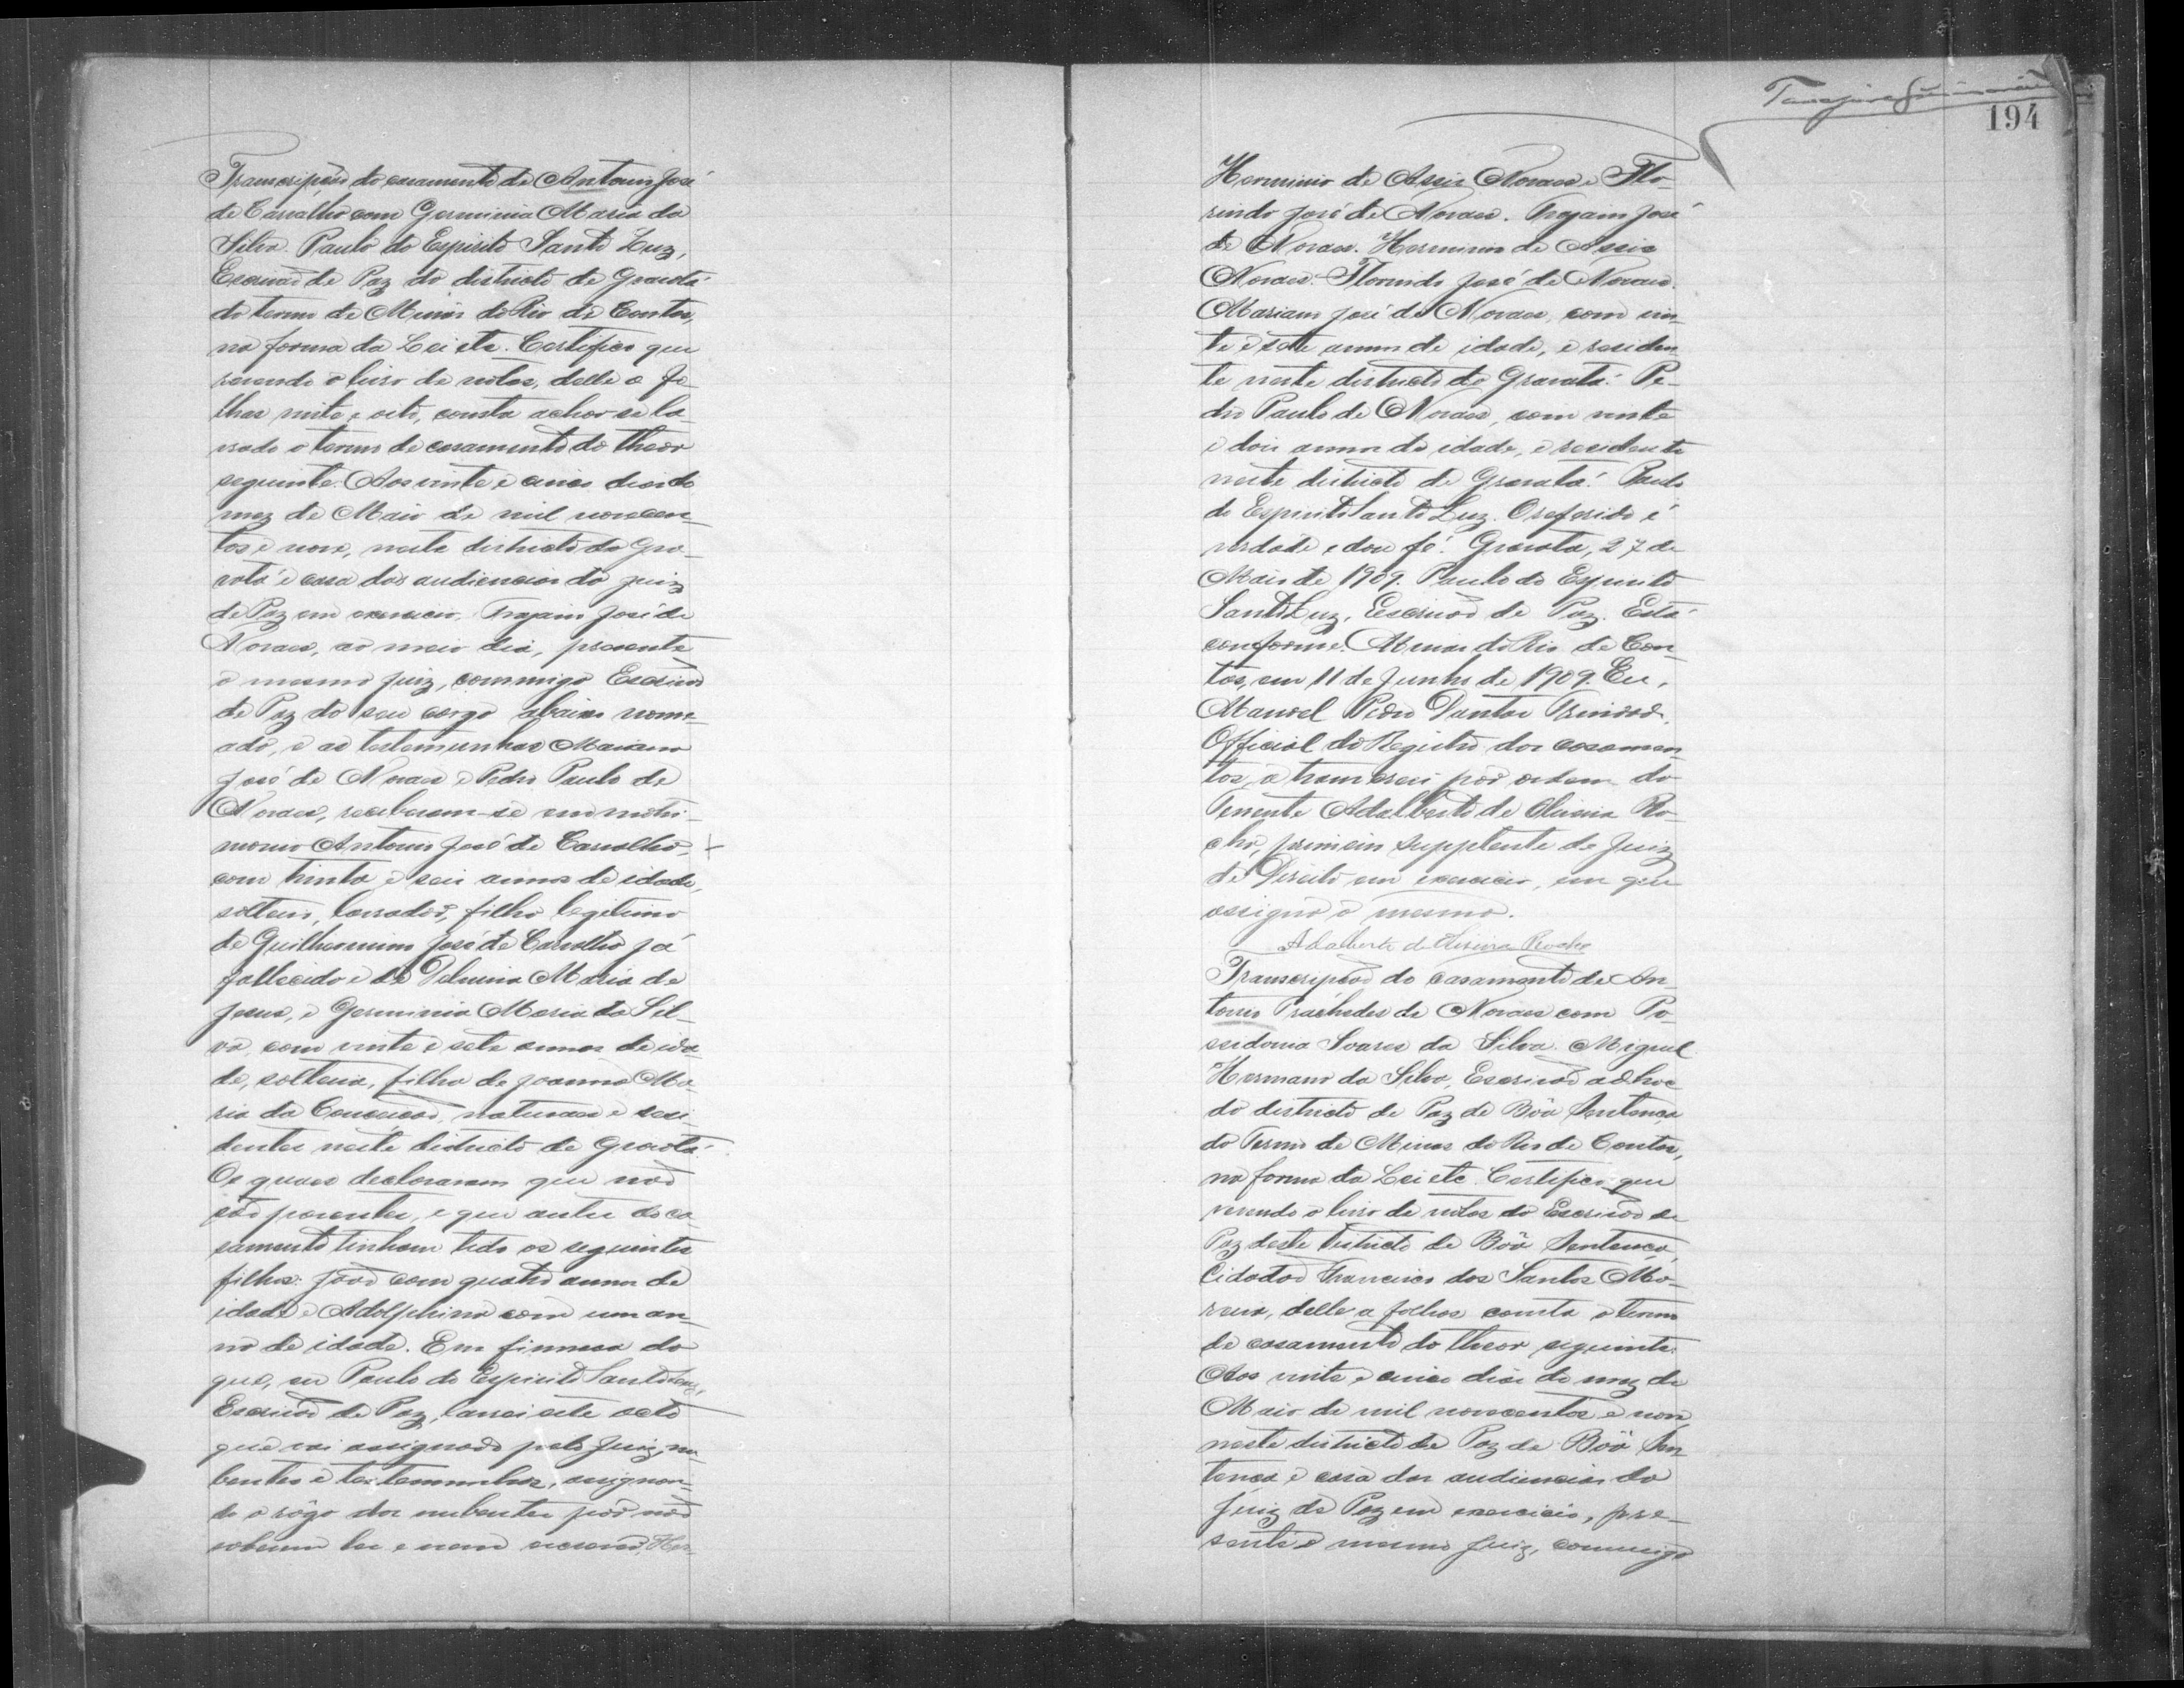 Transcripção do casamento de Antonio José
de Carvalho com Germinia Maria da
Silva. Paulo do Espirito Santo Luz,
Escrivão de Paz do districto de Gravatá
do termo de Minas do Rio de Contas,
na forma da Lei etc. Certifico que
revendo o livro de notas, delle a fo-
lhas vinte e oito, consta achar-se la-
vrado o termo de casamento do theor
seguinte: Aos vinte e cinco dias do
mez de Maio de mil novecen-
tos e nove, neste districto de Gra-
vatá e casa das audiencias do Juiz
de Paz em exercicio, Trajano José de
Novaes, ao meio dia, presente
o mesmo Juiz, commigo Escrivão
de Paz do seu cargo abaixo nome-
ado, e as testemunhas Mariano
José de Novaes e Pedro Paulo de
Novaes, receberam-se em matri-
monio Antonio José de Carvalho,
com trinta e seis annos de idade,
solteiro, lavrador, filho legitimo
de Guilhermino José de Carvalho já
fallecido e de Delmina Maria de
Jesus, e Germinia Maria da Sil-
va, com vinte e sete annos de ida-
de, solteira, filha de Joanna Ma-
ria da Conceição, naturaes e resi-
dentes neste districto de Gravatá.
Os quaes declararam que não
são parentes, e que antes do ca-
samento tinham tido os seguintes
filhos: João com quatro annos de
idade e Adolphina com um an-
no de idade. Em firmesa do
que, eu Paulo do Espirito Santo Luz,
Escrivão de Paz, lavrei este acto
que vai assignado pelo Juiz, nu-
bentes e testemunhas, assignan-
do a rôgo dos nubentes por não
saberem ler e nem escrever, Her-
194
Herminio de Assis Novaes e Flo-
rindo José de Novaes. Trajano José
de Novaes. Herminio de Assis
Novaes. Florindo José de Novaes.
Mariano José de Novaes, com vin-
te e sete annos de idade, e residen-
te neste districto de Gravatá. Pe-
dro Paulo de Novaes, com vinte
e dois annos de idade, e residente
neste districto de Gravatá. Paulo
do Espirito Santo Luz. O referido é
verdade e dou fé. Gravatá, 27 de
Maio de 1909. Paulo do Espirito
Santo Luz, Escrivão de Paz. Está
conforme. Minas do Rio de Con-
tas, em 11 de Junho de 1909. Eu,
Manoel Pedro Dantas Trindade,
Official do Registro dos casamen-
tos, o transcrevi por ordem do
Tenente Adalberto de Oliveira Ro-
cha, primeiro supplente de Juiz
de Direito em exercicio, em que
assigna o mesmo.
Adalberto de Oliveira Rocha
Transcripção do casamento de An-
tonio Práchedes de Novaes com Po-
ssidonia Soares da Silva. Miguel
Hermano da Silva, Escrivão ad hoc
do districto de Paz de Bôa Sentença
do Termo de Minas do Rio de Contas,
na forma da Lei etc. Certifico que
revendo o livro de notas do Escrivão de
Paz deste districto de Bôa Sentença,
Cidadão Francisco dos Santos Mo-
reira, delle a folhas consta o termo
de casamento do theor seguinte:
Aos vinte e cinco dias do mez de
Maio de mil novecentos e nove,
neste districto de Paz de Bôa Sen-
tença e casa das audiencias do
Juiz de Paz em exercicio, pre-
sente o mesmo Juiz, commigo